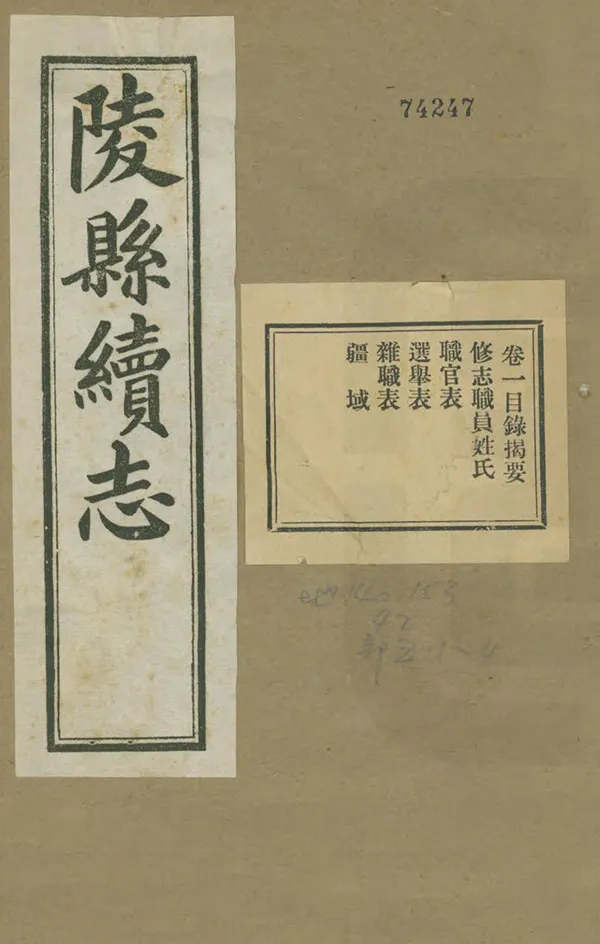 陵縣續志
74247
卷一目錄揭要
修志職員姓氏
職官表
選舉表
雜職表
疆域